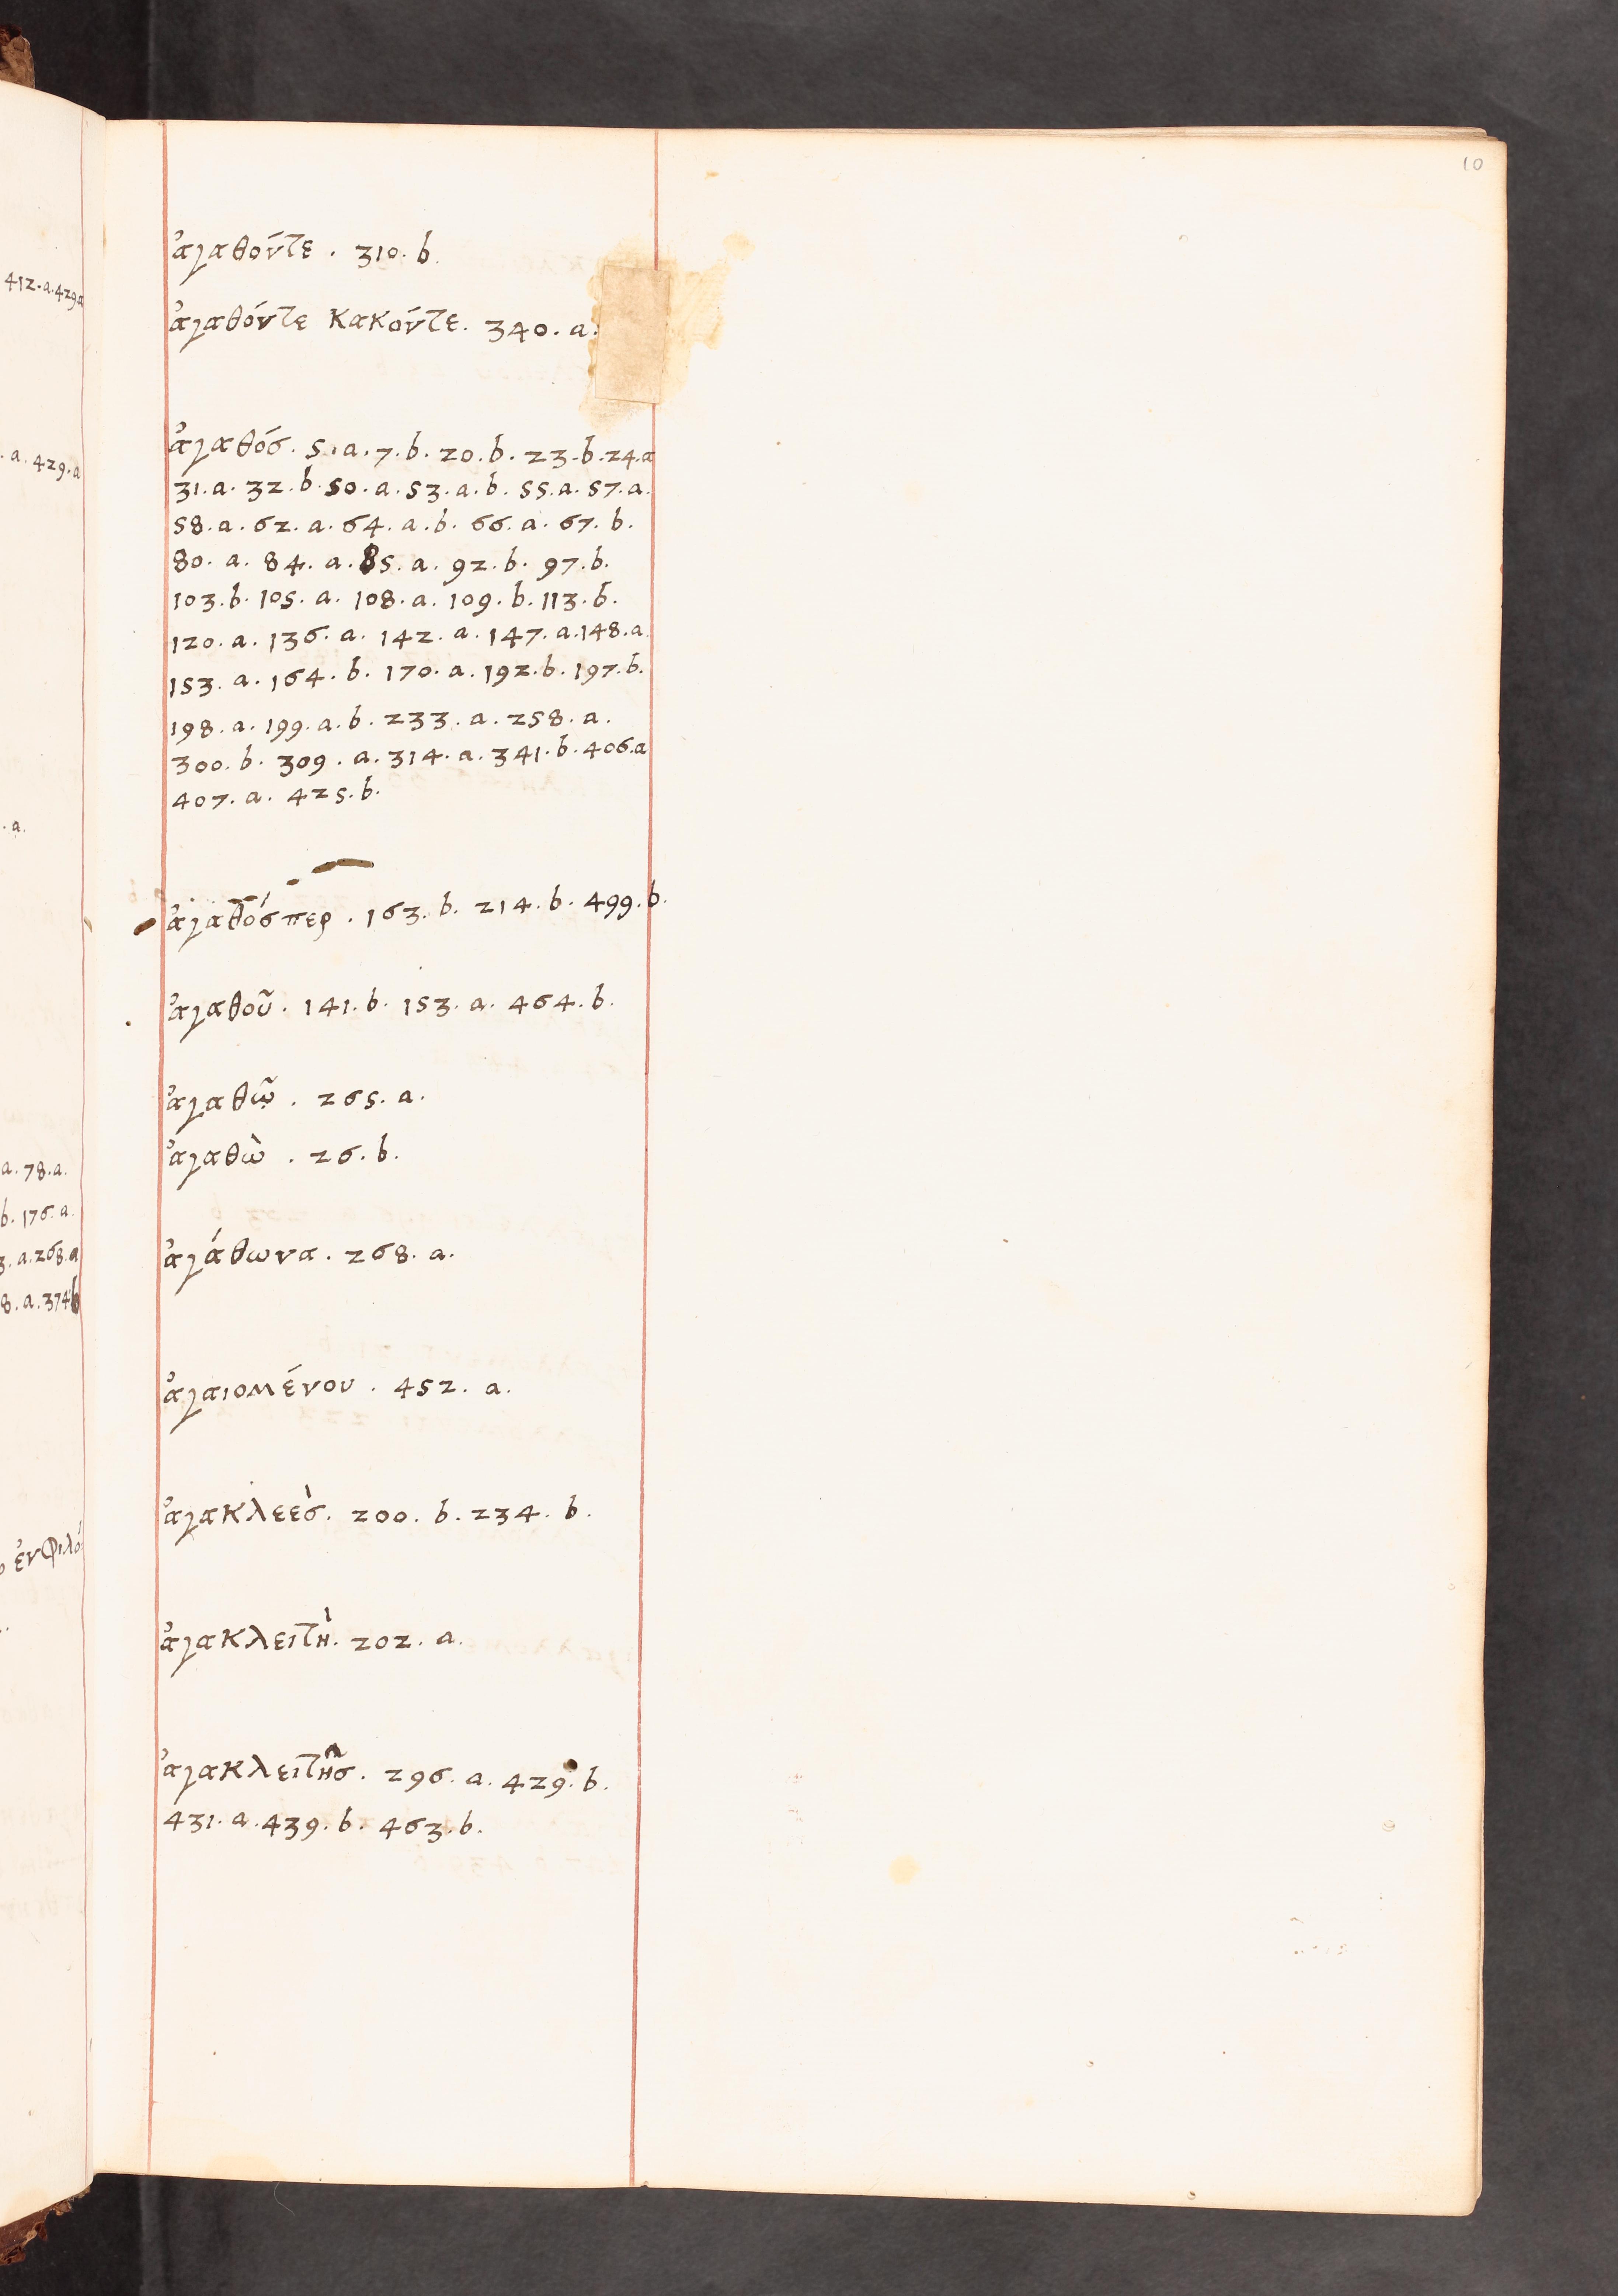 10
ἀγαθόντε . 310. b.
ἀγαθόντε κακόντε. 340. a.
ἀγαθόσ. 5. a. 7. b. 20. b. 23. b. 24. a
31. a. 32. b. 50. a. 53. a. b. 55. a. 57. a.
58. a. 62. a. 64. a. b. 66. a. 67. b.
80. a. 84. a. 85. a. 92. b. 97. b.
103. b. 105. a. 108. a. 109. b. 113. b.
120. a. 136. a. 142. a. 147. a. 148. a.
153. a. 164. b. 170. a. 192. b. 197. b.
198. a. 199. a. b. 233. a. 258. a.
300. b. 309. a. 314. a. 341. b. 406. a
407. a. 425. b.
ἀγαθόσπερ . 163. b. 214. b. 499. b.
ἀγαθοῦ. 141. b. 153. a. 464. b.
ἀγαθῷ . 265. a.
ἀγαθὼ . 26. b.
ἀγάθωνα. 268. a.
ἀγαιομένου . 452. a.
ἀγακλεὲσ. 200. b. 234. b.
ἀγακλειτὴ. 202. a.
ἀγακλειτῆσ. 296. a. 429. b.
431. a. 439. b. 463. b.
412. a. 429. a
. a. 429. a
. a.
a. 78. a.
b. 176. a.
3. a. 268. a
8. a. 374. b
ἐν φιλό